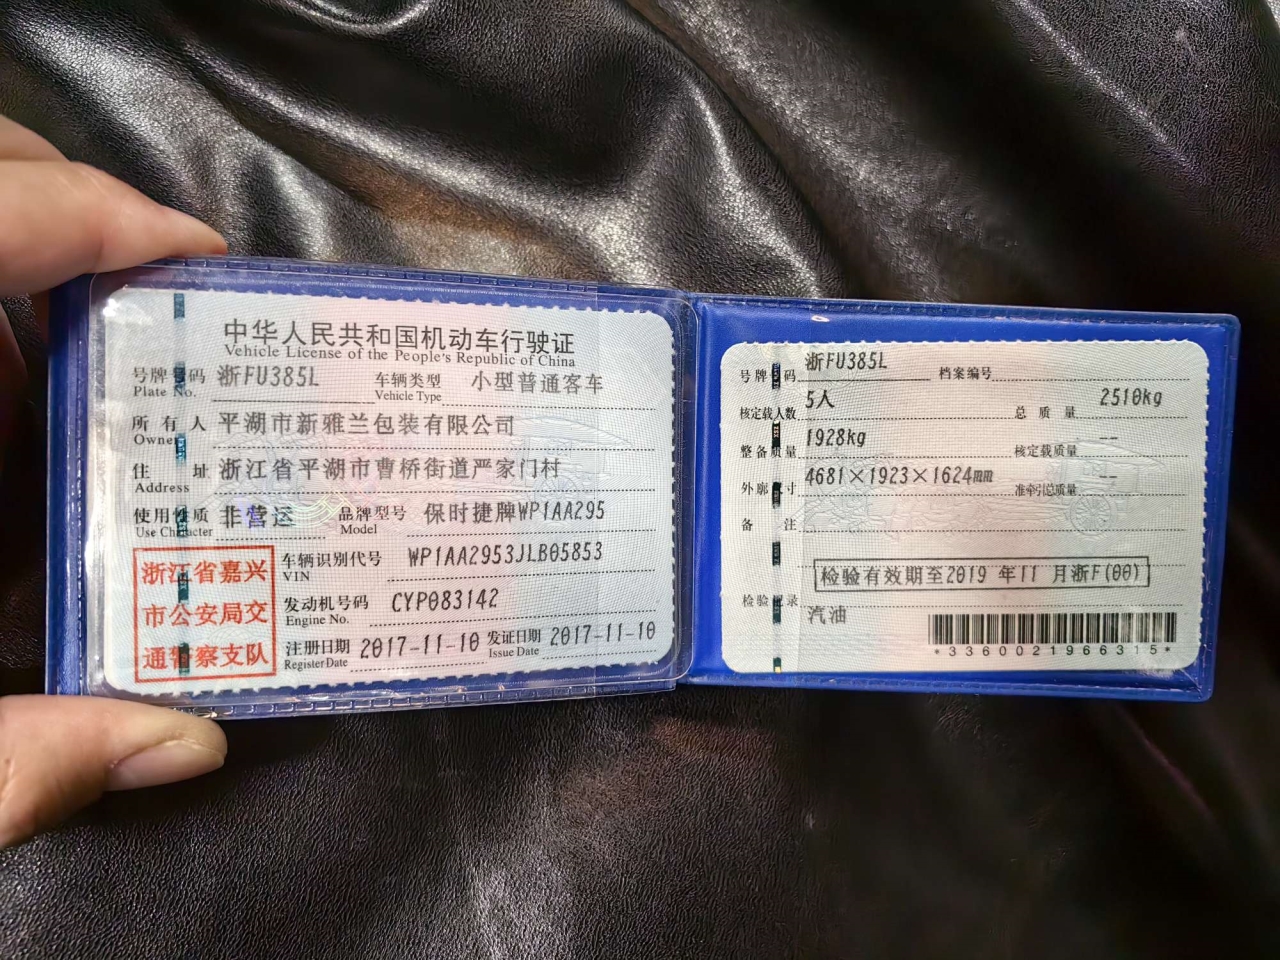 中华人民共和国机动车行驶证
Vehicle License of the People's Republic of China
号牌号码 浙FU385L 车辆类型 小型普通客车
Plate No. Vehicle Type
所有人 平湖市新雅兰包装有限公司
Owner
住址 浙江省平湖市曹桥街道严家门村
Address
使用性质 非营运 品牌型号 保时捷牌WP1AA295
Use Character Model
浙江省嘉兴
市公安局交
通警察支队
车辆识别代号 WP1AA2953JLB05853
VIN
发动机号码 CYP083142
Engine No.
注册日期 2017-11-10 发证日期 2017-11-10
Register Date Issue Date
号牌号码 浙FU385L 档案编号
核定载人数 5人 总质量 2510kg
整备质量 1928kg 核定载质量 --
外廓尺寸 4681×1923×1624mm 准牵引总质量 --
备注
检验有效期至2019 年11 月浙F(00)
检验记录
汽油
*3360021966315*